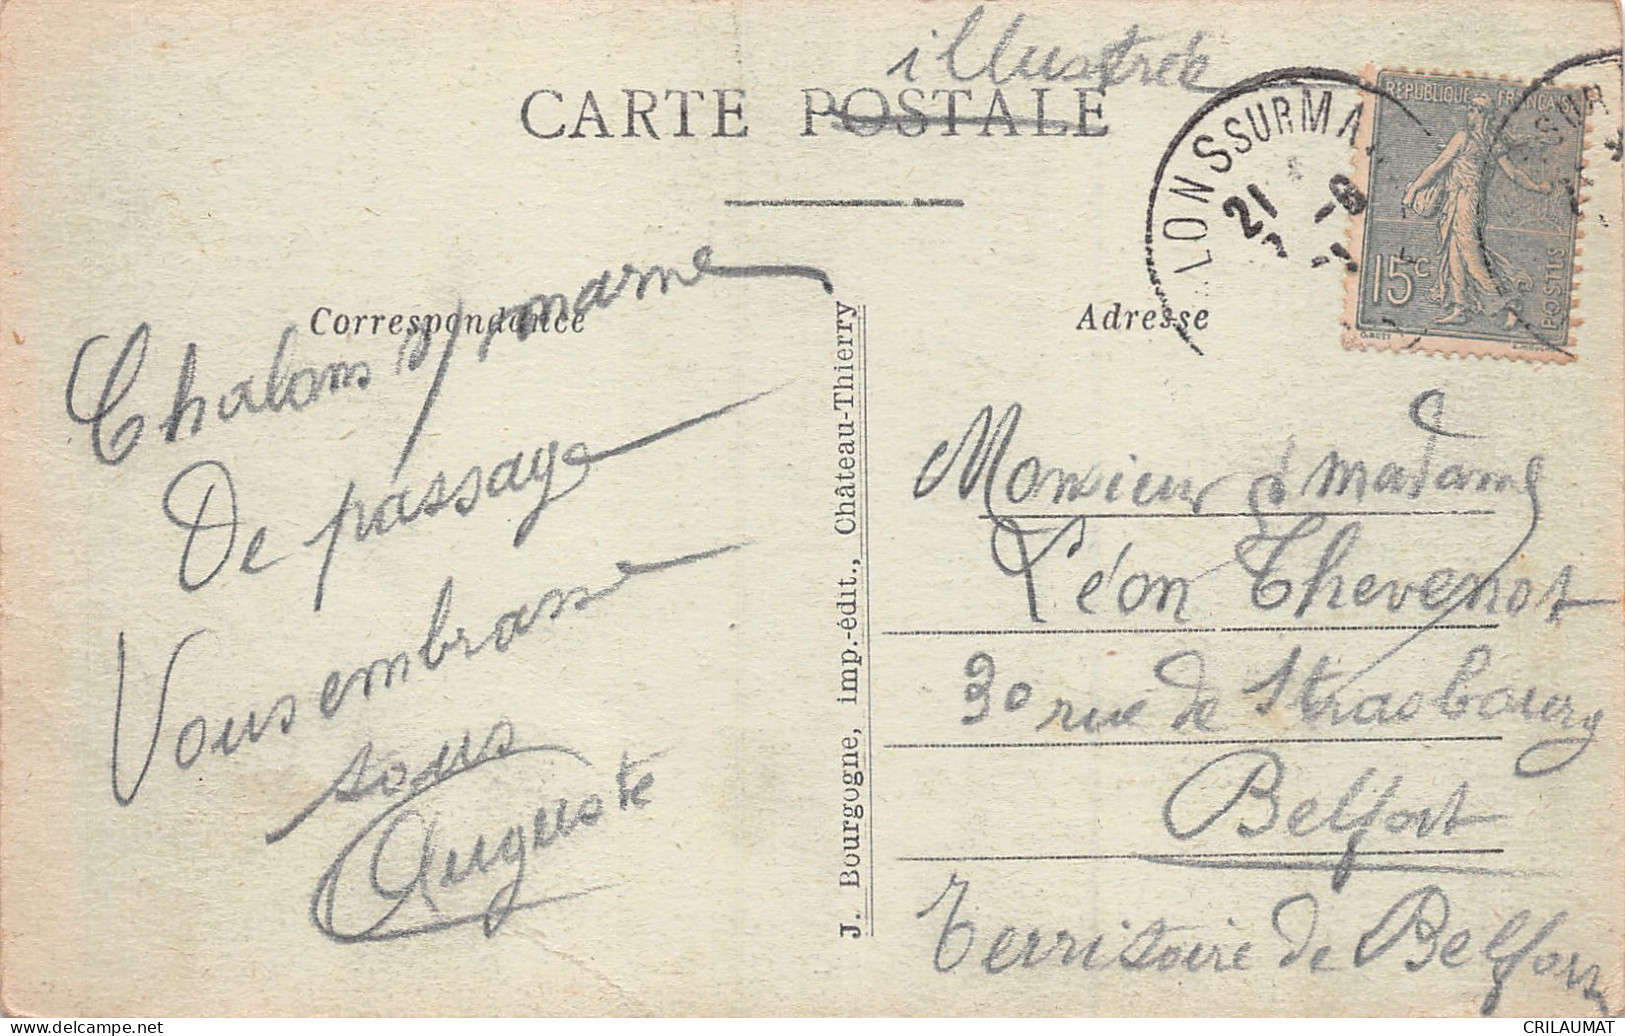 illustrée
CARTE POSTALE
LONS SUR MA
21 -8
REPUBLIQUE FRANÇAISE
15c
POSTES
Correspondance
Adresse
Chalons s/ marne
De passage
Vous embrasse
tous
Auguste
J. Bourgogne, imp.-édit., Château-Thierry
Monsieur & madame
Léon Thevenot
30 rue de Strasbourg
Belfort
Territoire de Belfort
CRILAUMAT